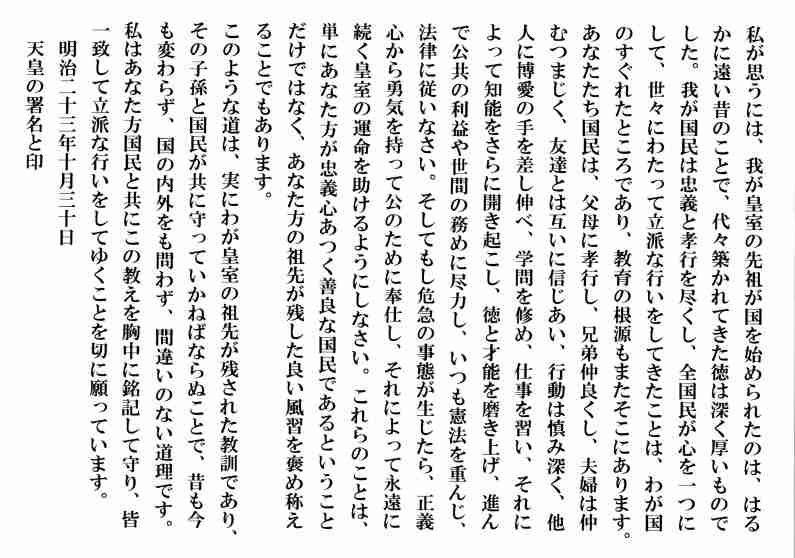 私が思うには、我が皇室の先祖が国を始められたのは、はる
かに遠い昔のことで、代々築かれてきた徳は深く厚いもので
した。我が国民は忠義と孝行を尽くし、全国民が心を一つに
して、世々にわたって立派な行いをしてきたことは、わが国
のすぐれたところであり、教育の根源もまたそこにあります。
あなたたち国民は、父母に孝行し、兄弟仲良くし、夫婦は仲
むつまじく、友達とは互いに信じあい、行動は慎み深く、他
人に博愛の手を差し伸べ、学問を修め、仕事を習い、それに
よって知能をさらに開き起こし、徳と才能を磨き上げ、進ん
で公共の利益や世間の務めに尽力し、いつも憲法を重んじ、
法律に従いなさい。そしてもし危急の事態が生じたら、正義
心から勇気を持って公のために奉仕し、それによって永遠に
続く皇室の運命を助けるようにしなさい。これらのことは、
単にあなた方が忠義心あつく善良な国民であるということ
だけではなく、あなた方の祖先が残した良い風習を褒め称え
ることでもあります。
このような道は、実にわが皇室の祖先が残された教訓であり、
その子孫と国民が共に守っていかねばならぬことで、昔も今
も変わらず、国の内外をも問わず、間違いのない道理です。
私はあなた方国民と共にこの教えを胸中に銘記して守り、皆
一致して立派な行いをしてゆくことを切に願っています。
明治二十三年十月三十日
天皇の署名と印